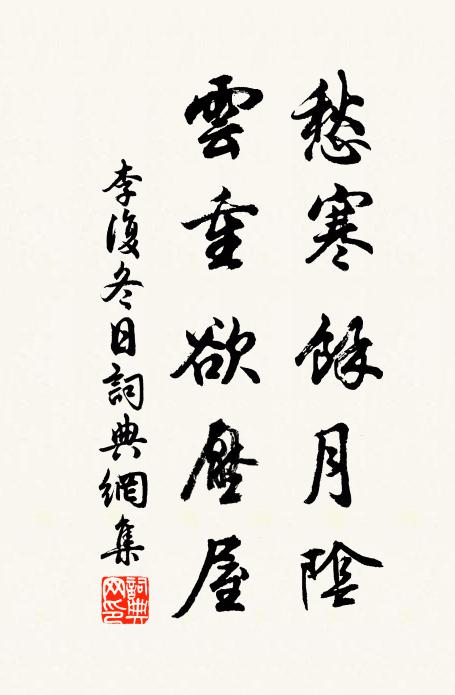 愁寒餘月陰
雲重欲壓屋
李復冬日詞典網集
詞典網印